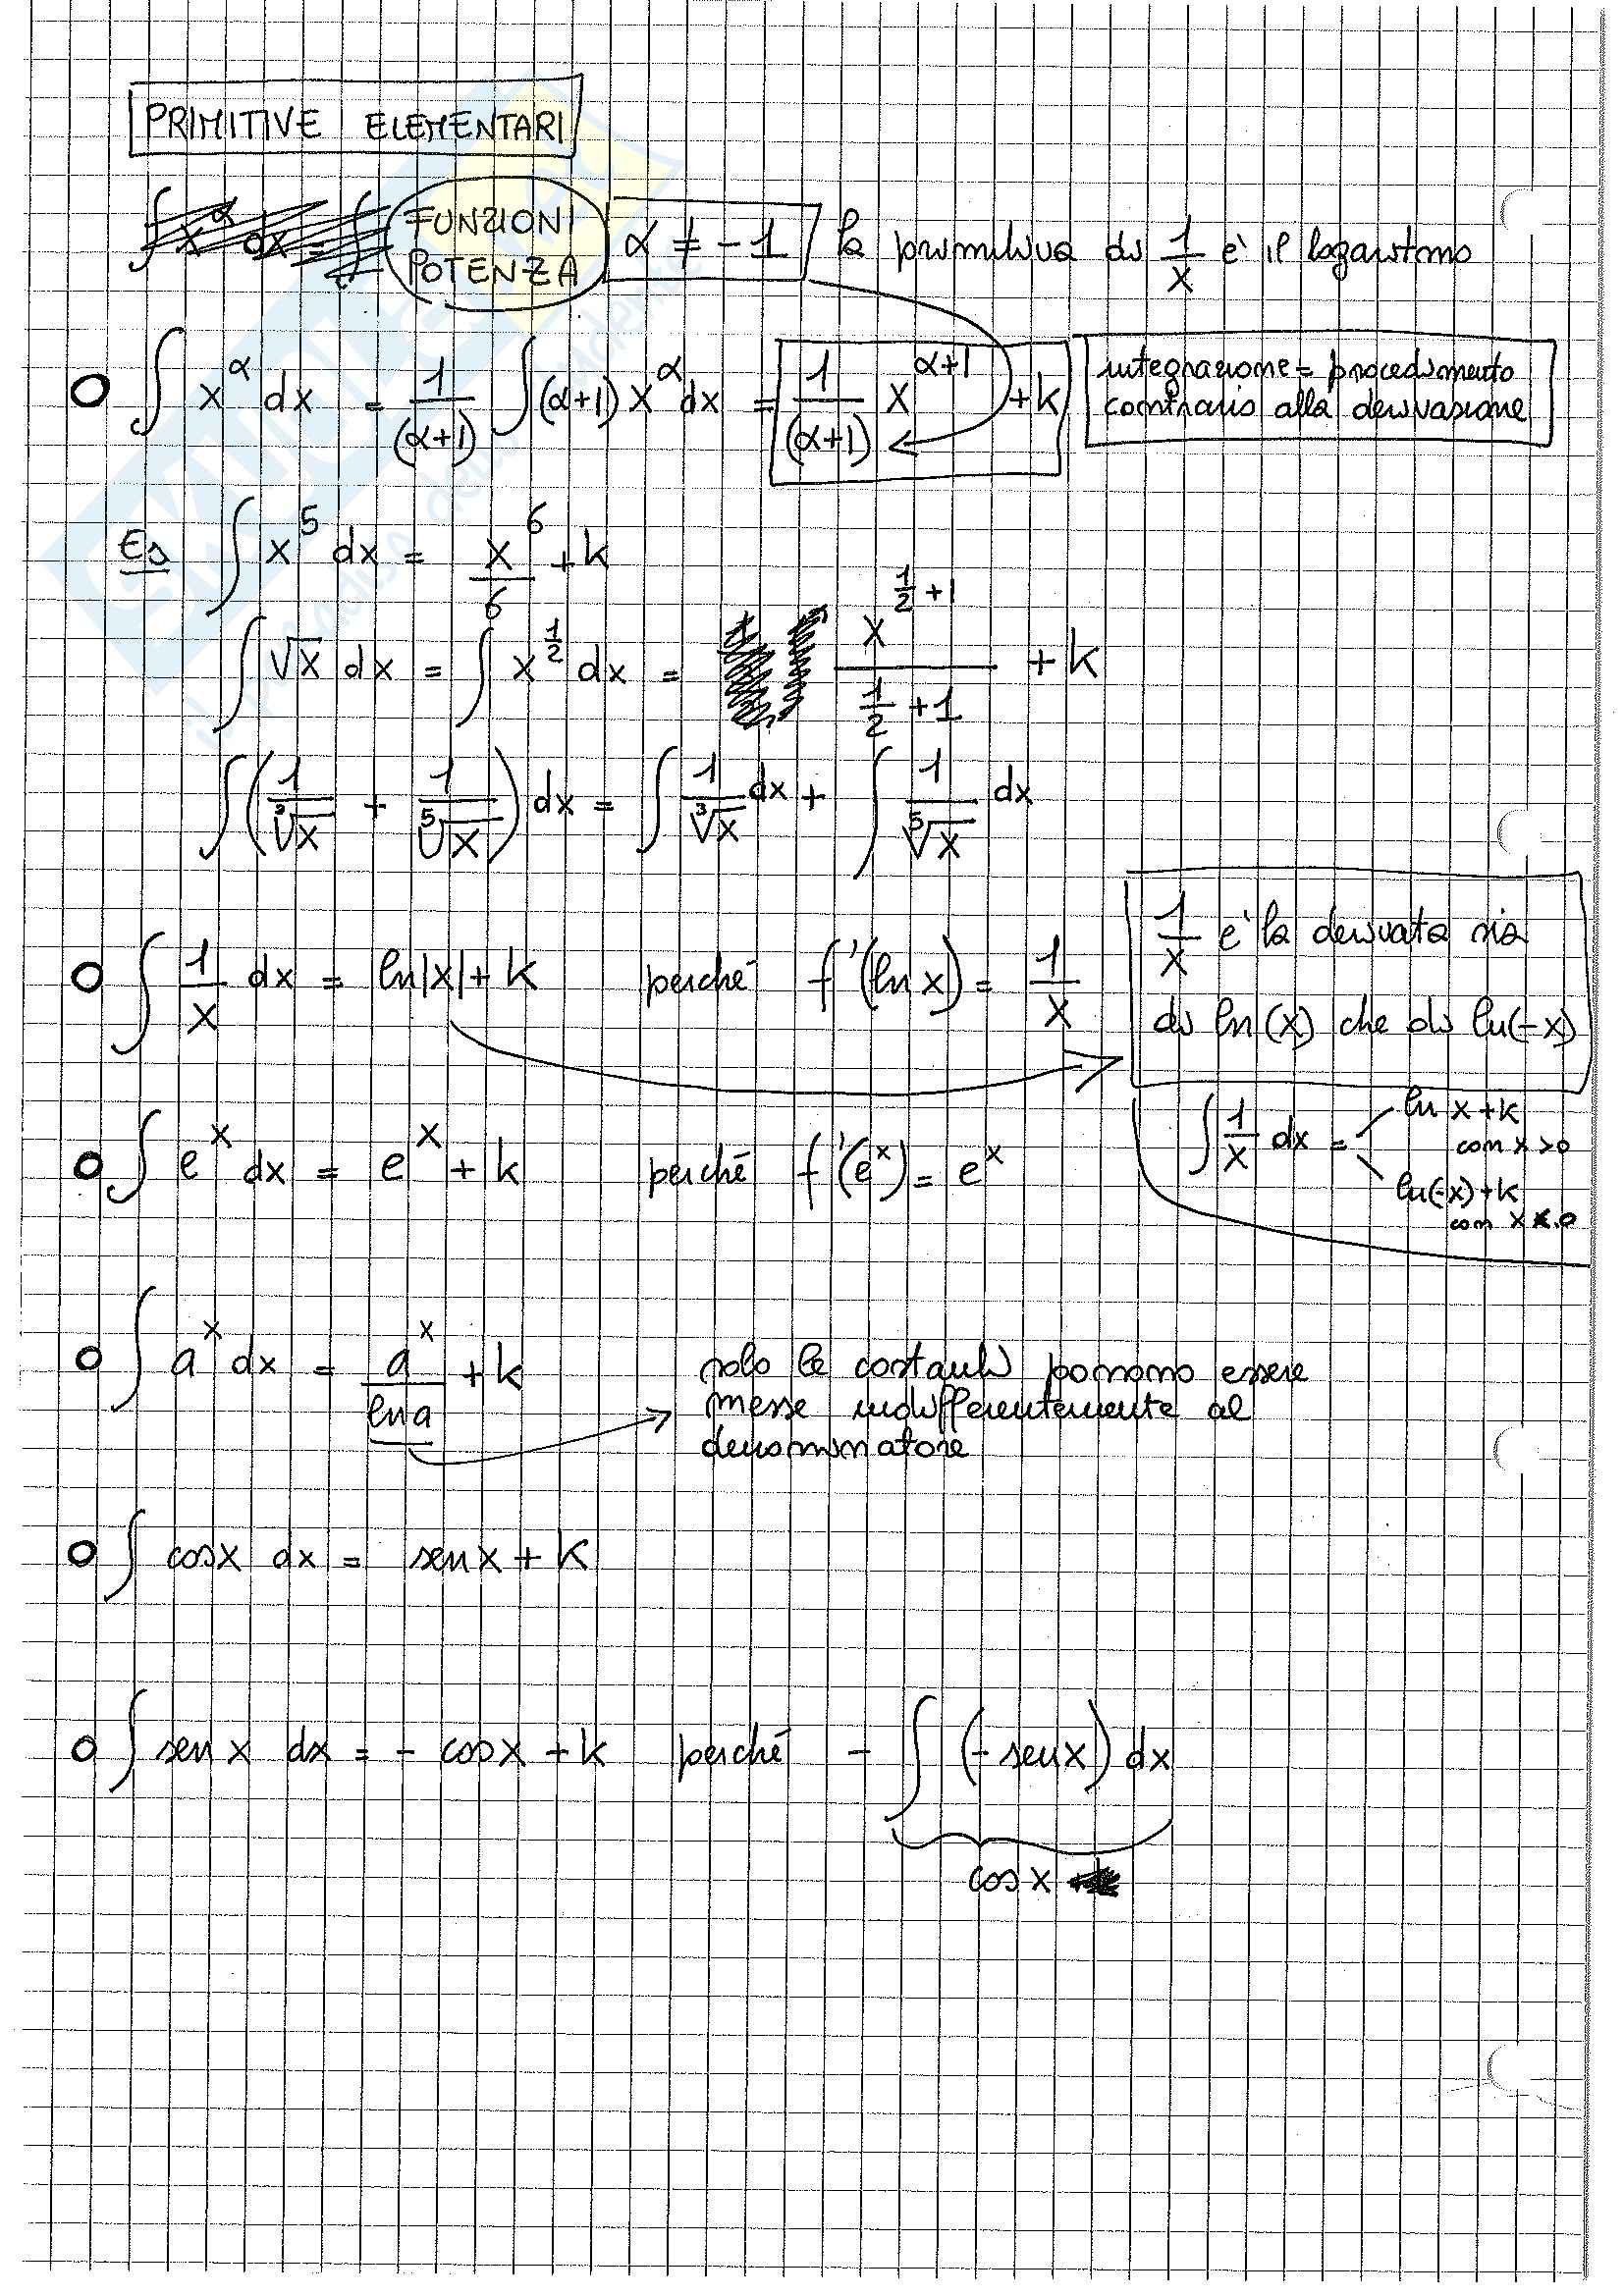 PRIMITIVE ELEMENTARI
∫ x^α dx = ∫ FUNZIONI POTENZA α ≠ -1 la primitiva di 1/x e' il logaritmo
∫ x^α dx = 1/(α+1) ∫ (α+1) x^α dx = 1/(α+1) x^(α+1) + k
integrazione = procedimento
contrario alla derivazione
Es ∫ x^5 dx = x^6/6 + k
∫ √x dx = ∫ x^(1/2) dx = x^(1/2 + 1) / (1/2 + 1) + k
∫ (1/∛x + 1/⁵√x) dx = ∫ 1/∛x dx + ∫ 1/⁵√x dx
∫ 1/x dx = ln|x| + k perché f'(ln x) = 1/x
1/x e' la derivata sia
di ln(x) che di ln(-x)
∫ 1/x dx = ln x + k
con x > 0
ln(-x) + k
con x < 0
∫ e^x dx = e^x + k perché f'(e^x) = e^x
∫ a^x dx = a^x / ln a + k
solo le costanti possono essere
messe indifferentemente al
denominatore
∫ cosx dx = senx + k
∫ sen x dx = - cosx + k perché - ∫ (- senx) dx
cos x